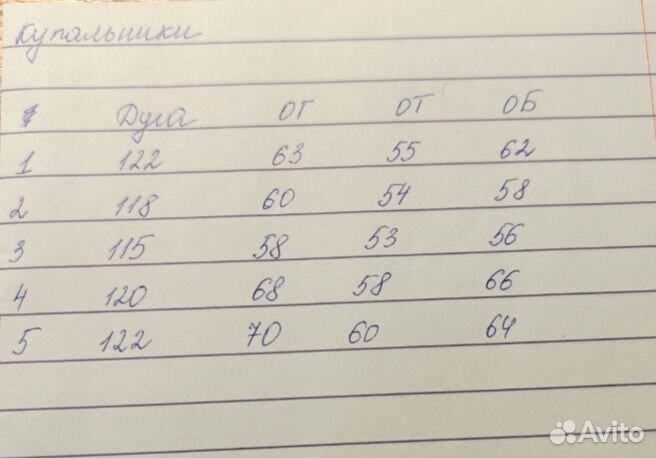 Купальники
Дуга ОГ ОТ ОБ
1 122 63 55 62
2 118 60 54 58
3 115 58 53 56
4 120 68 58 66
5 122 70 60 64
Avito